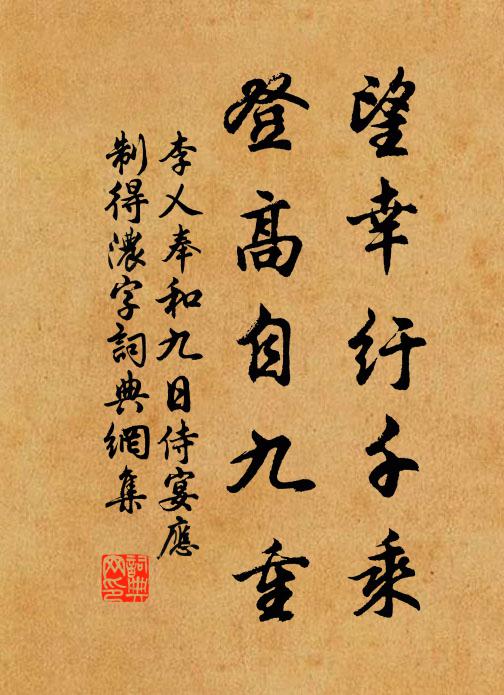 望幸紆千乘
登高自九重
李乂奉和九日侍宴應
制得濃字詞典網集
詞典
网印